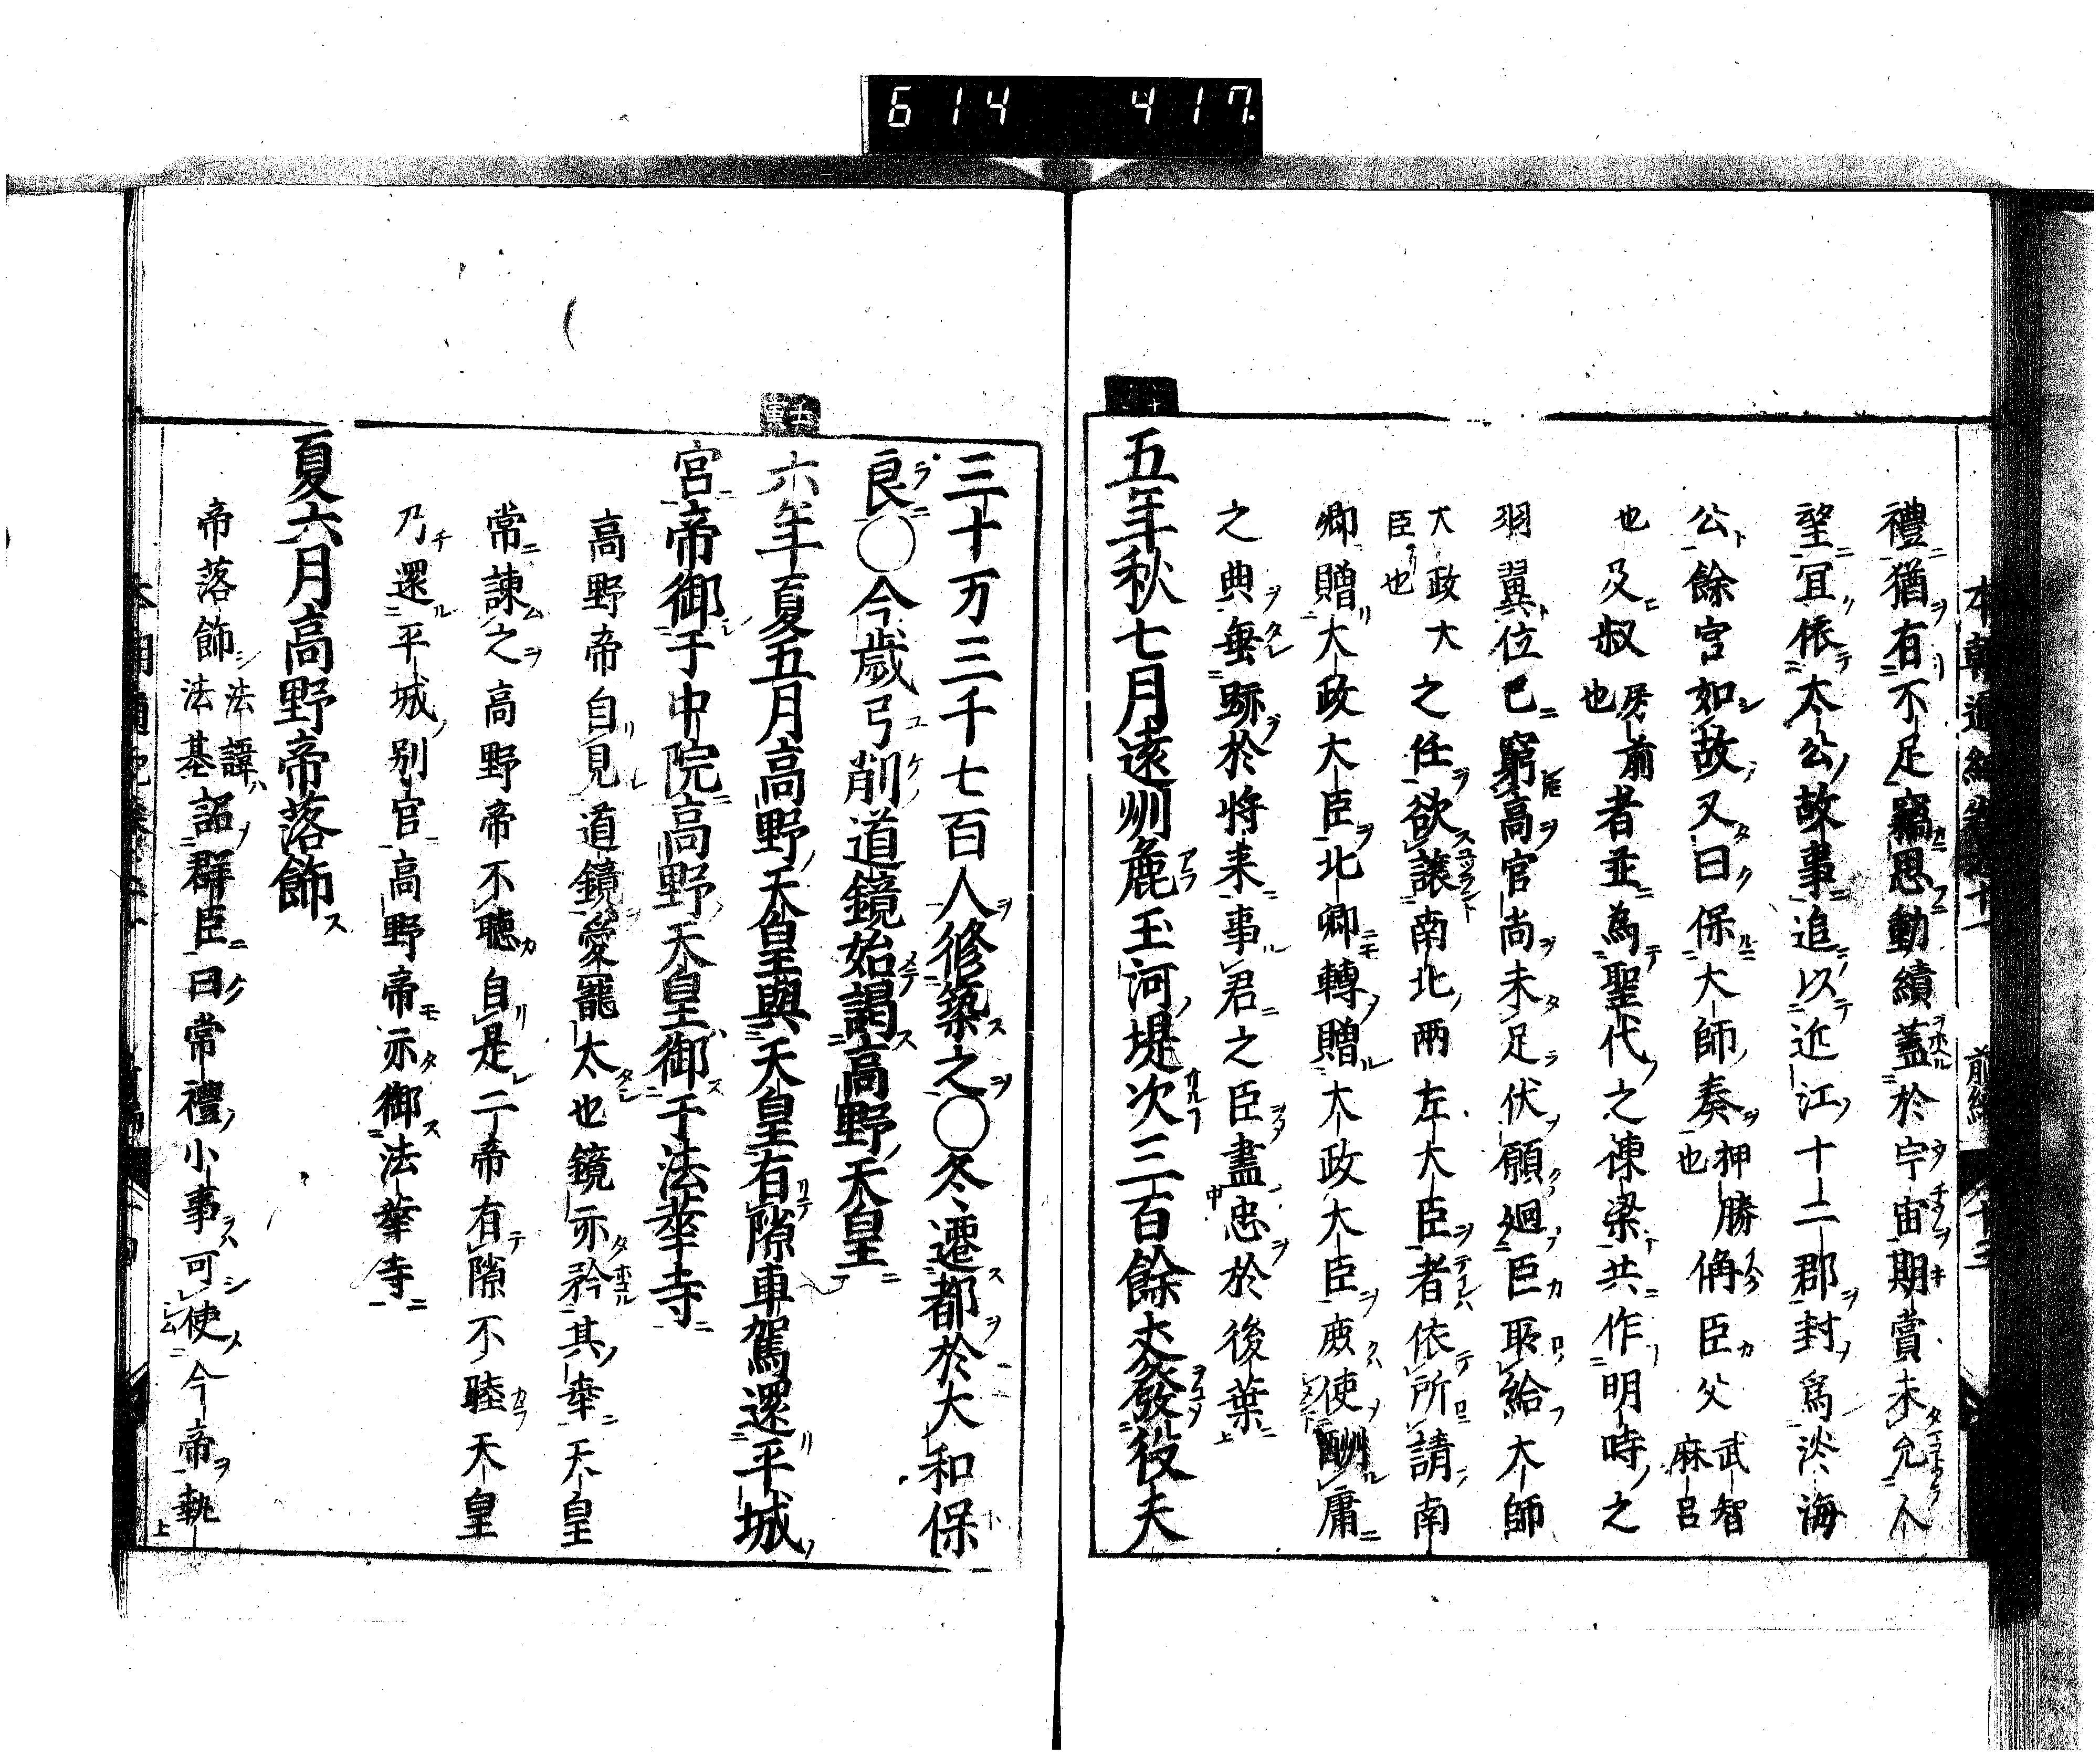 614 417
禮猶有不足竊思動績蓋於宇宙期賞未允人
望宜依太公故事追以近江十二郡封為淡海
公餘官如故又曰保大師奏押勝也俻臣父武智麻呂
也及叔房前也者並為聖代之棟梁共作明時之
羽翼位已窮高官尚未足伏願廻臣所給大師
大政大臣也之任欲讓南北兩左大臣者依所請南
卿贈大政大臣北卿轉贈大政大臣庶使酬庸
之典垂跡於將来事君之臣盡忠於後葉
五年秋七月遠州麁玉河堤次三百餘丈發役夫
三十万三千七百人修築之〇冬遷都於大和保
良〇今歲弓削道鏡始謁高野天皇
六年夏五月高野天皇與天皇有隙車駕還平城
宮帝御于中院高野天皇御于法華寺
高野帝自見道鏡愛寵太也鏡亦矜其幸天皇
常諫之高野帝不聽自是二帝有隙不睦天皇
乃還平城別宮高野帝亦御法華寺
夏六月高野帝落飾
帝落飾法諱法基詔群臣曰常禮小事可使今帝執